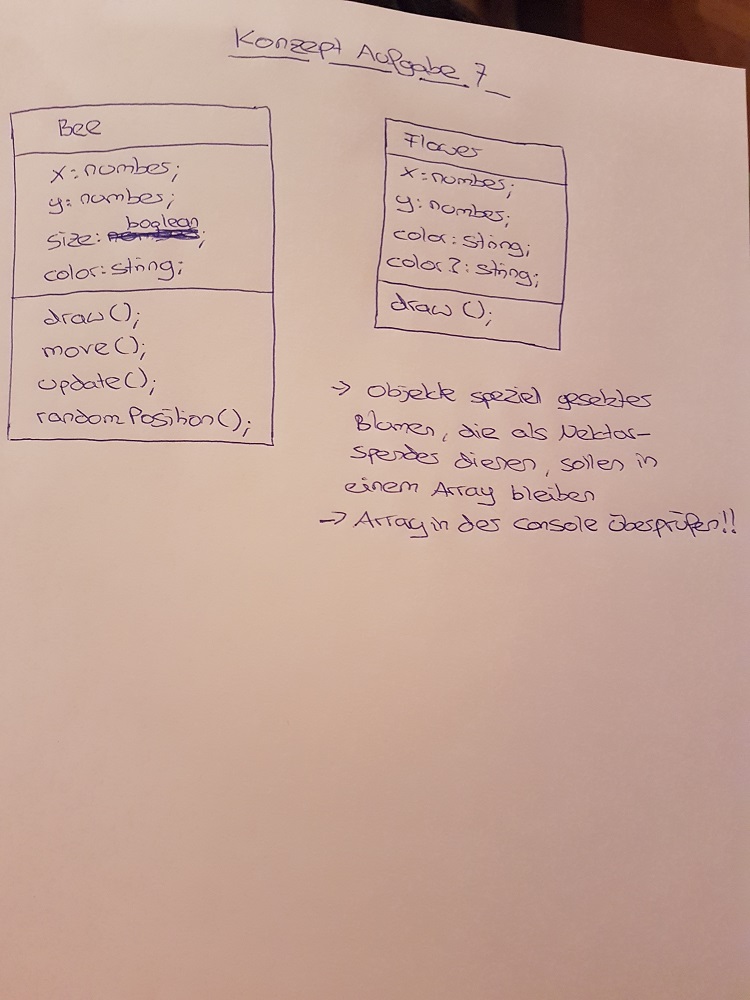 Konzept Aufgabe 7
Bee
x: number;
y: number;
boolean
size: number;
color: string;
draw();
move();
update();
randomPosition();
Flower
x: number;
y: number;
color: string;
color2: string;
draw();
-> Objekte speziel gesetzter
Blumen, die als Nektor-
spender dienen, sollen in
einem Array bleiben
-> Array in der Console überprüfen!!